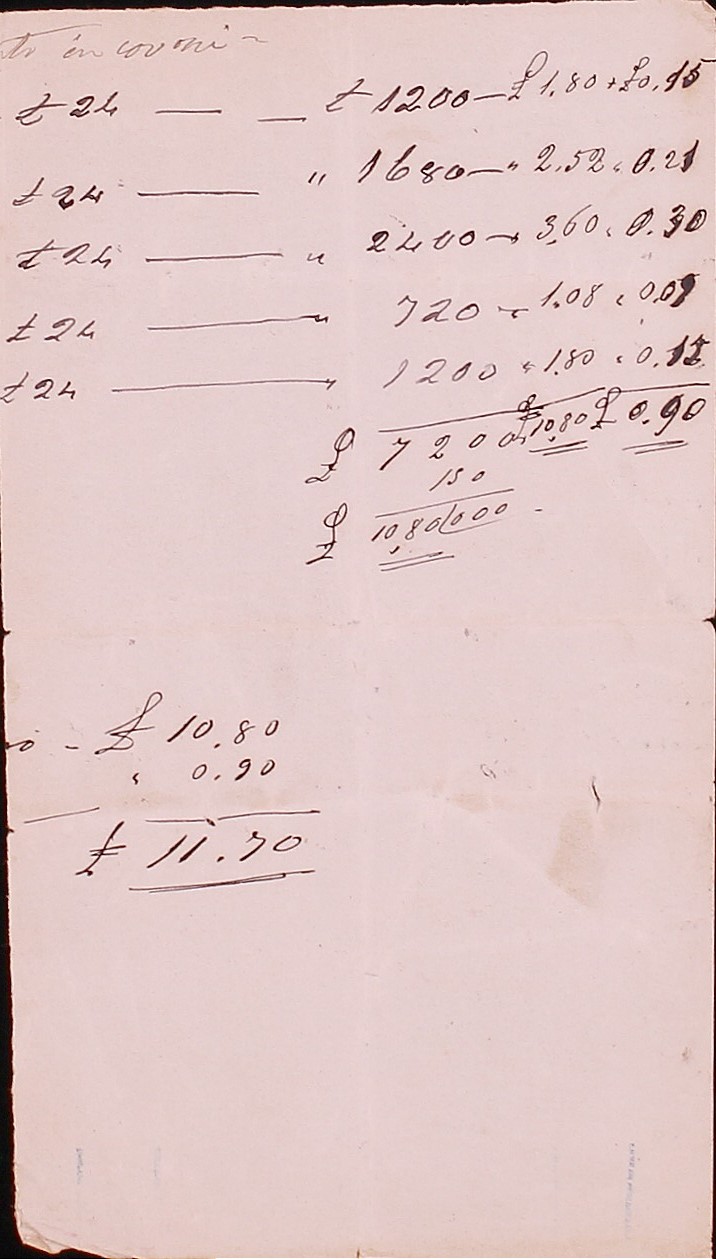 in covoni -
£ 24 — — £ 1200 — £ 1.80 + £ 0.15
£ 24 — " 1680 — " 2.52 " 0.21
£ 24 — " 2400 — " 3,60 " 0.30
£ 24 — " 720 — " 1.08 " 0.09
£ 24 — " 1200 " 1.80 " 0.15
£ 7200 £ 10,80 £ 0.90
150
£ 10,80|000 -
- £ 10.80
" 0.90
£ 11.70